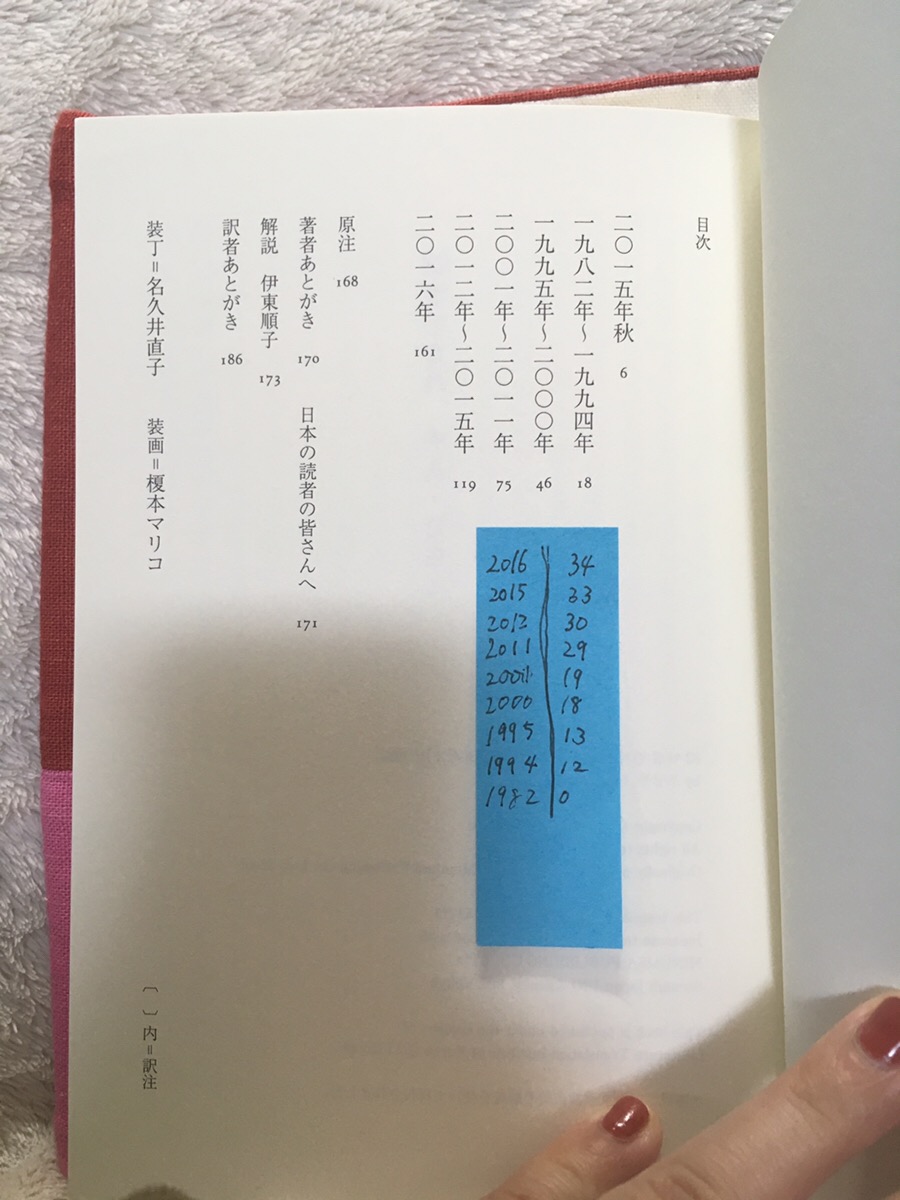 目次
二〇一五年秋 6
一九八二年〜一九九四年 18
一九九五年〜二〇〇〇年 46
二〇〇一年〜二〇一一年 75
二〇一二年〜二〇一五年 119
二〇一六年 161
原注 168
著者あとがき 170 日本の読者の皆さんへ 171
解説 伊東順子 173
訳者あとがき 186
装丁=名久井直子 装画=榎本マリコ
〔 〕内=訳注
2016 34
2015 33
2012 30
2011 29
2001 19
2000 18
1995 13
1994 12
1982 0